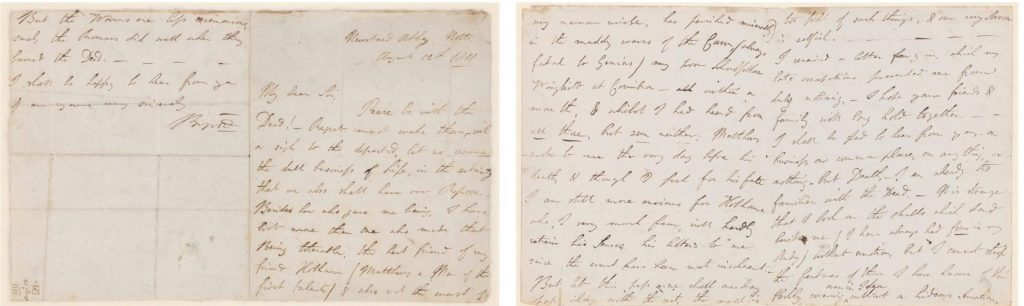 But the Worms are less ceremonious,
surely the Romans did well when they
burned the Dead. — — — —
I shall be happy to hear from you
& am yours very sincerely
Byron
Newstead Abbey, Notts
August 12th 1811
My dear Sir,
Peace be with the
Dead! — Regret cannot wake them, with
a sigh to the departed, let us resume
the dull business of life, in the certainty
that we also shall have our Repose. —
Besides her who gave me being, I have
lost more than one who made that
Being tolerable, the best friend of my
friend Hobhouse (Matthews a Man of the
first talents) & also not the worst of
my narrow circle, has perished miserably
in the muddy waves of the Cam (always
fatal to Genius) my poor Schoolfellow
Wingfield at Coimbra — within a
month, & whilst I had heard from
all three, but seen neither. Matthews
wrote to me the very day before his
death, & though I feel for his fate
I am still more anxious for Hobhouse
who, I very much fear, will hardly
retain his Senses, his letters to me
since the event have been most incoherent. —
But let this pass, we shall one day
pass along with the rest, the world is
too full of such things, & our very Sorrow
is selfish. — — — — —
I received a letter from you which my
late occupations prevented me from
duly noticing, — I hope your friends &
family will long hold together. — —
I shall be glad to hear from you, on
business, on common place, or any thing, or
nothing — but Death, — I am already too
familiar with the Dead. — It is strange
that I look on the skulls which stand
beside me (I have always had four in my
Study) without emotion, but I cannot strip
the features of those I have known of their
fleshy covering even in Idea without a hideous Sensation,